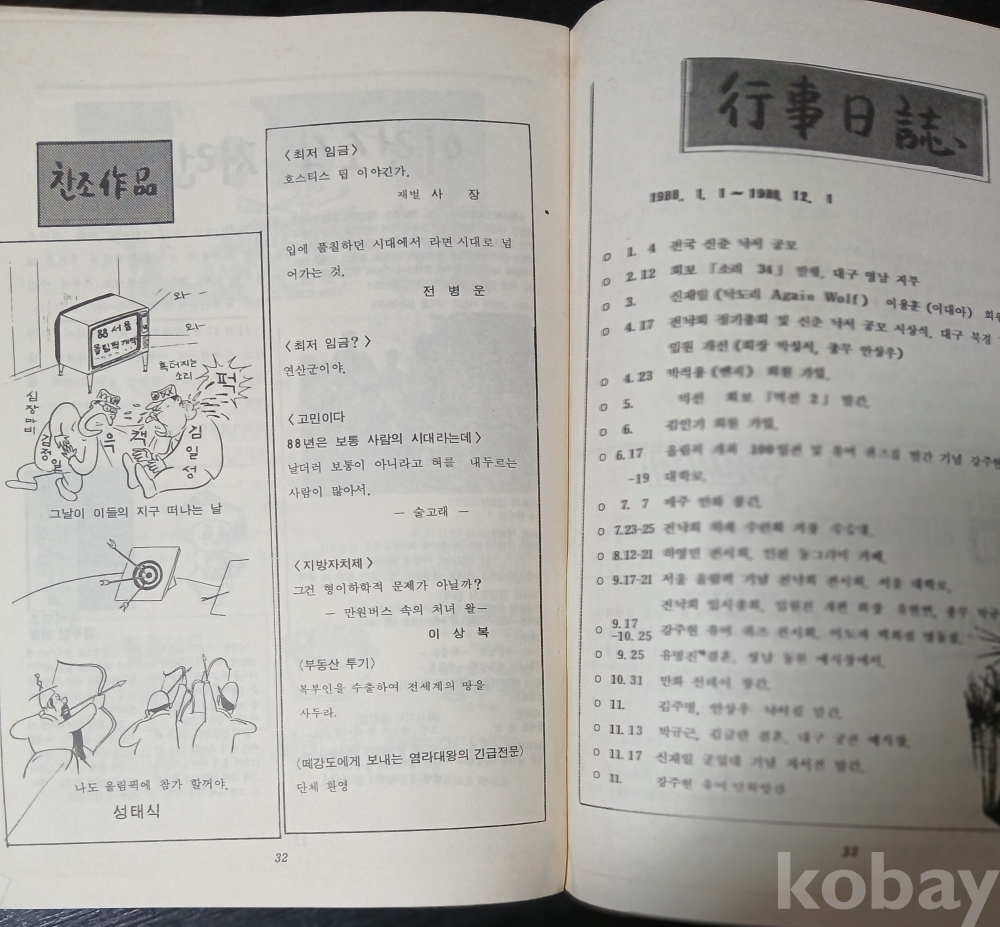 찬조作品
와-
와-
88 서울
올림픽 개막
복터지는
소리
퍽
심장마비
윽
캑
김정일
김일성
그날이 이들의 지구 떠나는 날
나도 올림픽에 참가 할꺼야.
성태식
〈최저 임금〉
호스티스 팁 이야긴가.
재벌 사 장
입에 풀질하던 시대에서 라면시대로 넘
어가는 것.
전 병 운
〈최저 임금?〉
연산군이야.
〈고민이다
88년은 보통 사람의 시대라는데〉
날더러 보통이 아니라고 혀를 내두르는
사람이 많아서.
― 술고래 ―
〈지방자치제〉
그건 형이하학적 문제가 아닐까?
― 만원버스 속의 처녀 왈―
이 상 복
〈부동산 투기〉
복부인을 수출하여 전세계의 땅을
사두라.
〈떼강도에게 보내는 염라대왕의 긴급전문〉
단체 환영
32
行事日誌
1988. 1. 1 ~ 1988. 12. 1
1. 4 전국 신춘 낙서 공모
2.12 회보 「소리 34」 발행. 대구 영남 지부
3. 신재일 《낙도리 Again Wolf》 이용훈 (이대아)
4.17 전낙회 정기총회 및 신춘 낙서 공모 시상식. 대구 북경
임원 개선 (회장 박성서, 총무 안상우)
4.23 회원 가입.
5. 역선 회보 「역선 2」 발간.
6. 김민기 회원 가입.
6.17 올림픽 개최 100일전 및 유머 퀴즈집 발간 기념 강주현
-19 대학로.
7. 7 매주 만화 창간.
7.23-25 전낙회 하계 수련회
8.12-21 전시회, 인천 동그라미 카페.
9.17-21 서울 올림픽 기념 전낙회 전시회, 서울 대학로.
전낙회 임시총회, 임원진 개편 회장 총무
9.17
-10.25 강주현 유머 퀴즈 전시회,
9.25 유명진 결혼, 성남 동원 예식장에서.
10.31 만화 선데이 창간.
11. 김주명, 안상우 낙서집 발간.
11.13 박규근, 결혼, 대구 궁전 예식장.
11.17 신재일 군입대 기념 자서전 발간.
11. 강주현 유머
33
kobay